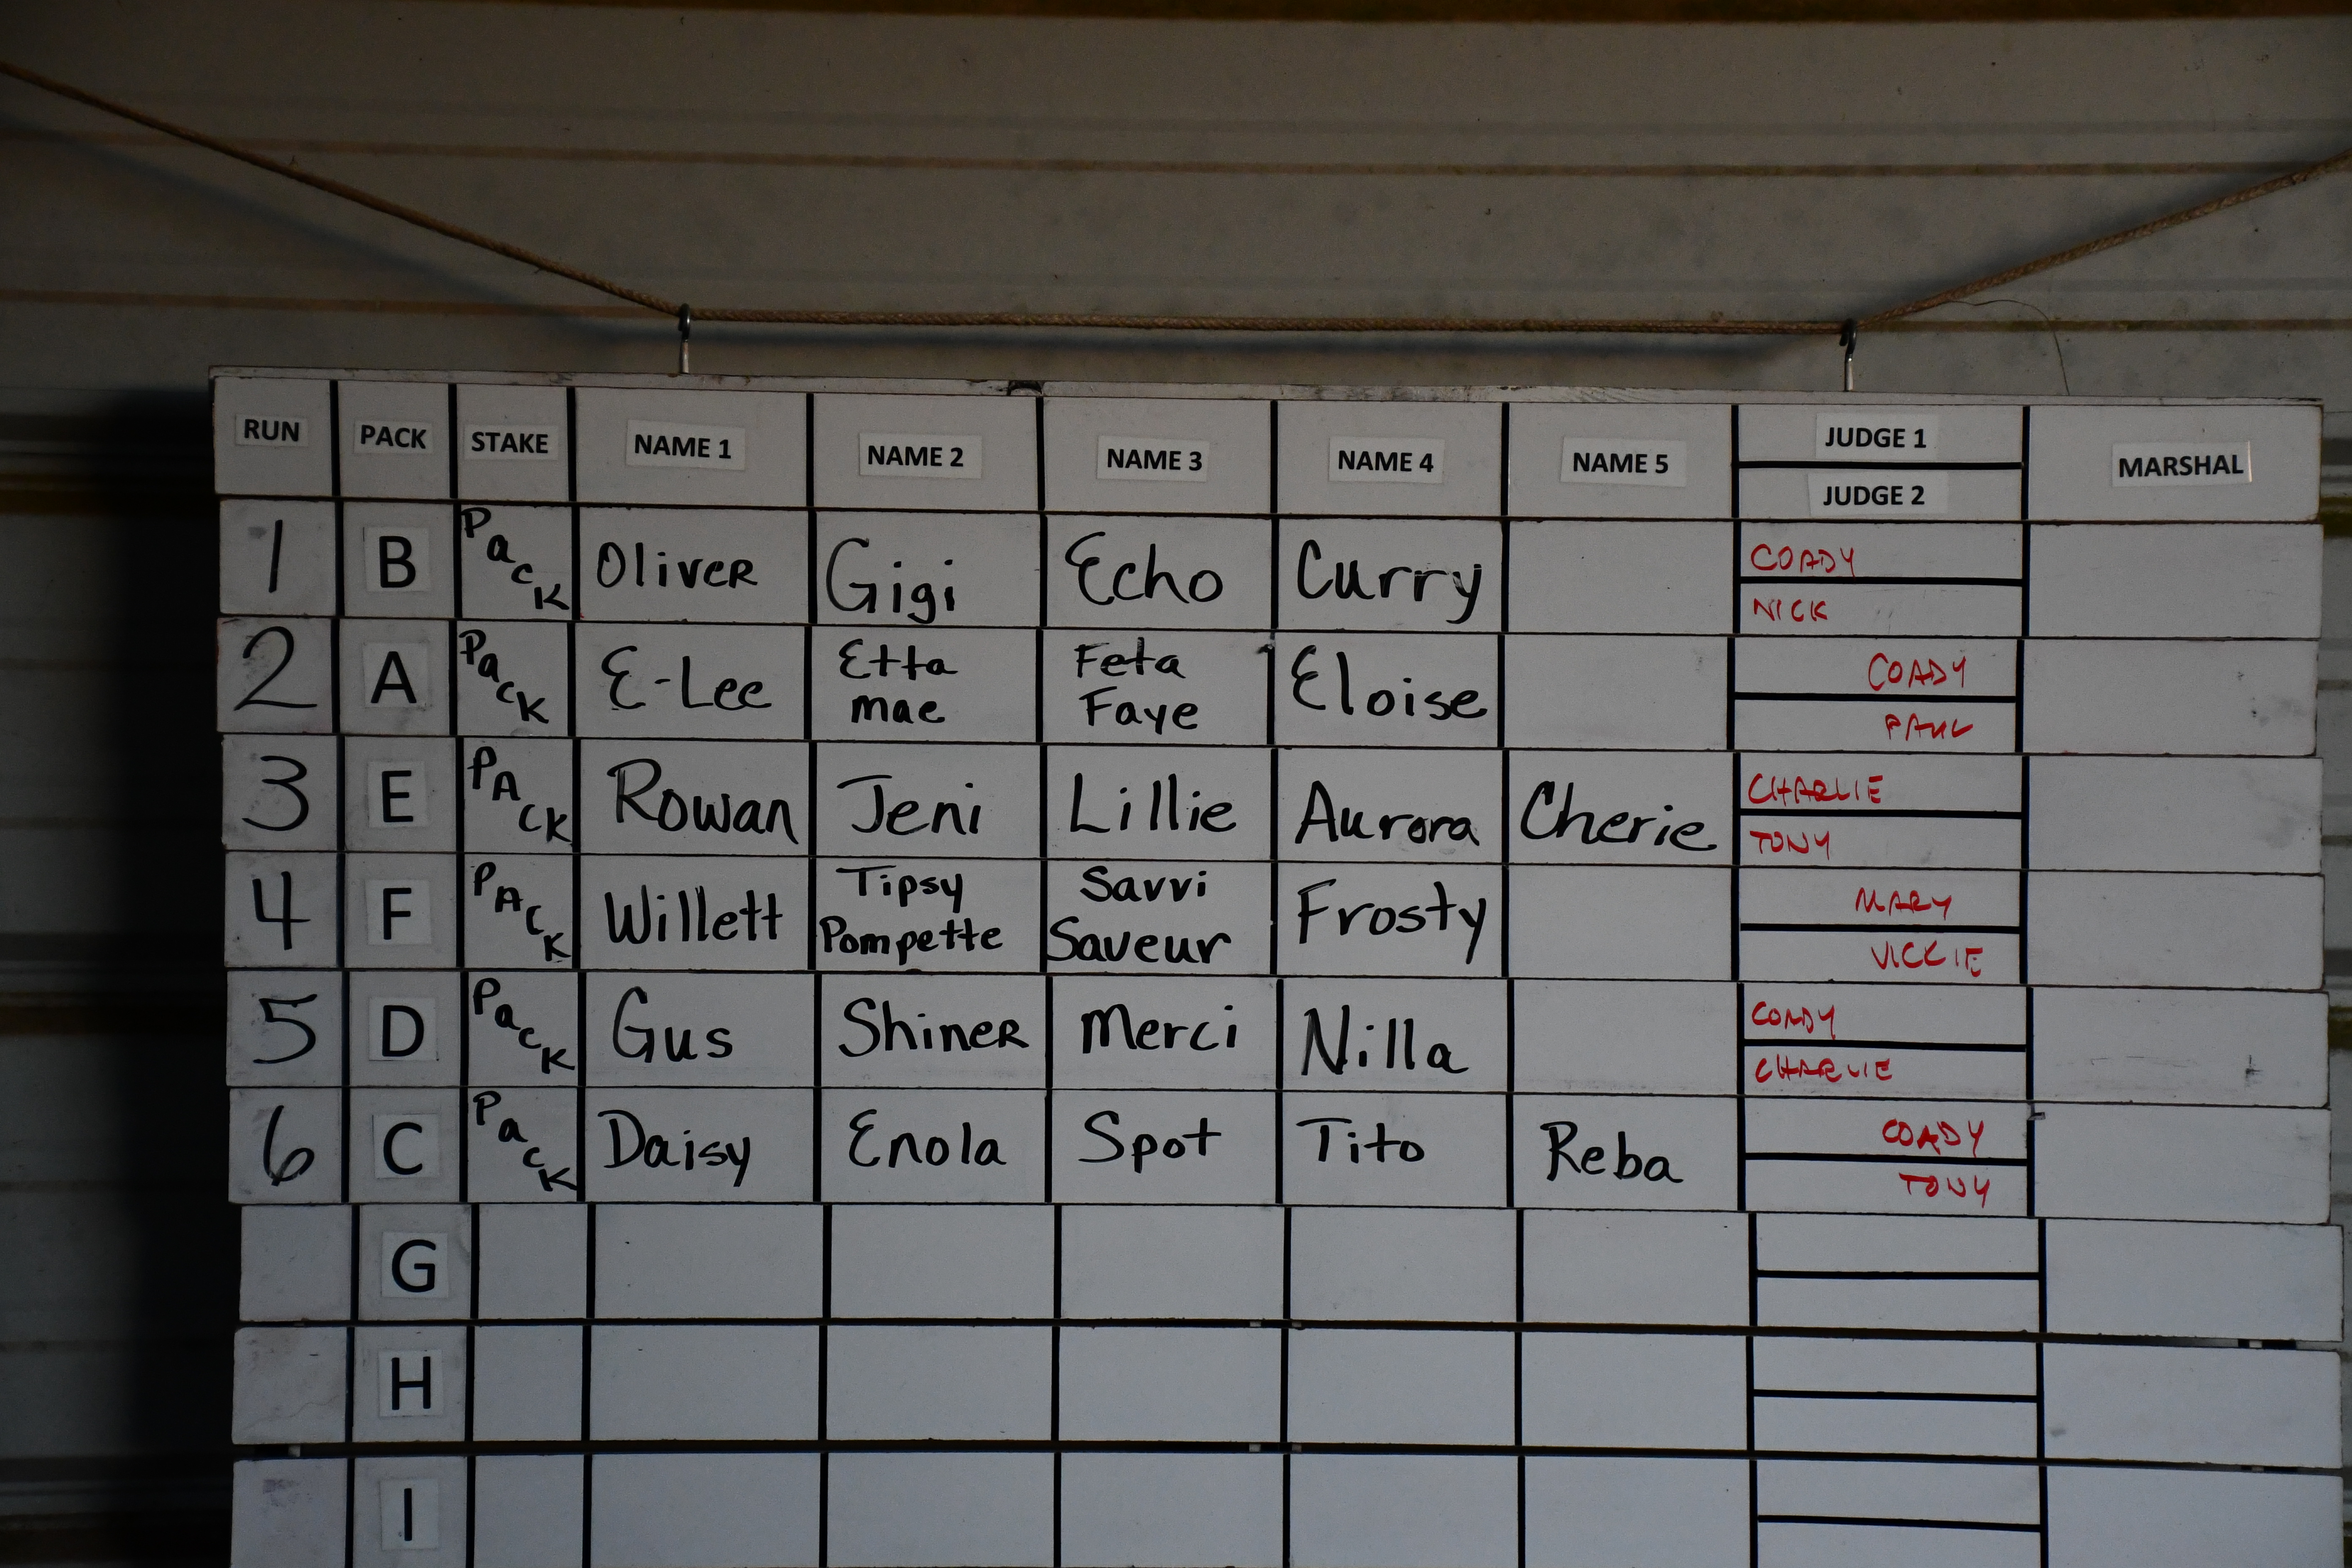 RUN PACK STAKE NAME 1 NAME 2 NAME 3 NAME 4 NAME 5 JUDGE 1 MARSHAL
JUDGE 2
1 B Pack Oliver Gigi Echo Curry COADY
NICK
2 A Pack E-Lee Etta Feta Eloise COADY
mae Faye PAUL
3 E PACK Rowan Jeni Lillie Aurora Cherie CHARLIE
TONY
4 F PACK Willett Tipsy Savvi Frosty MARY
Pompette Saveur VICKIE
5 D Pack Gus Shiner Merci Nilla COADY
CHARLIE
6 C Pack Daisy Enola Spot Tito Reba COADY
TONY
G
H
I